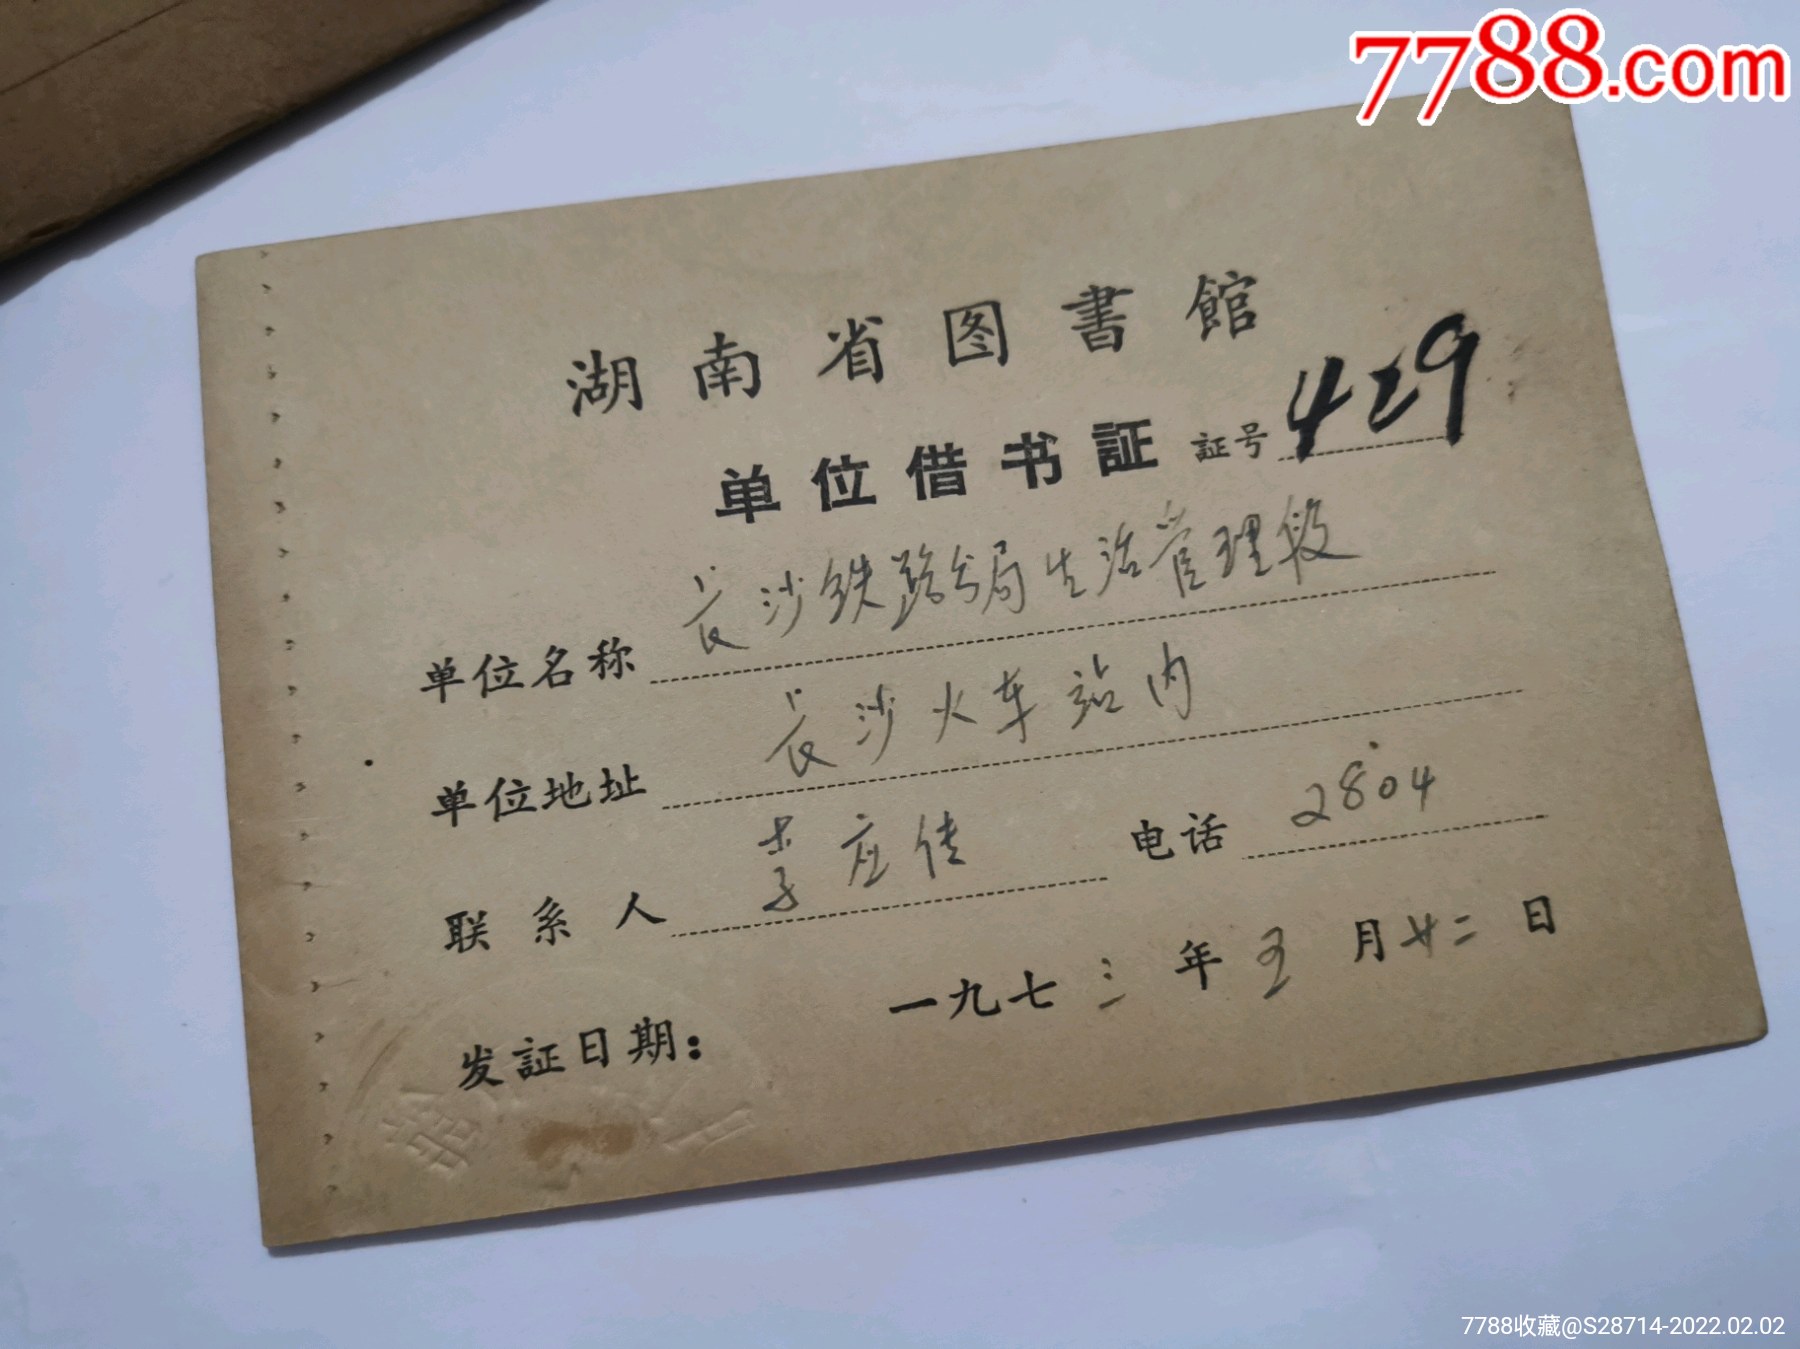 7788.com
湖南省图書館
单位借书証 証号 429
单位名称 长沙铁路分局生活管理段
单位地址 长沙火车站内
联系人 李应传 电话 2804
发証日期： 一九七三年五月廿二日
7788收藏@S28714-2022.02.02